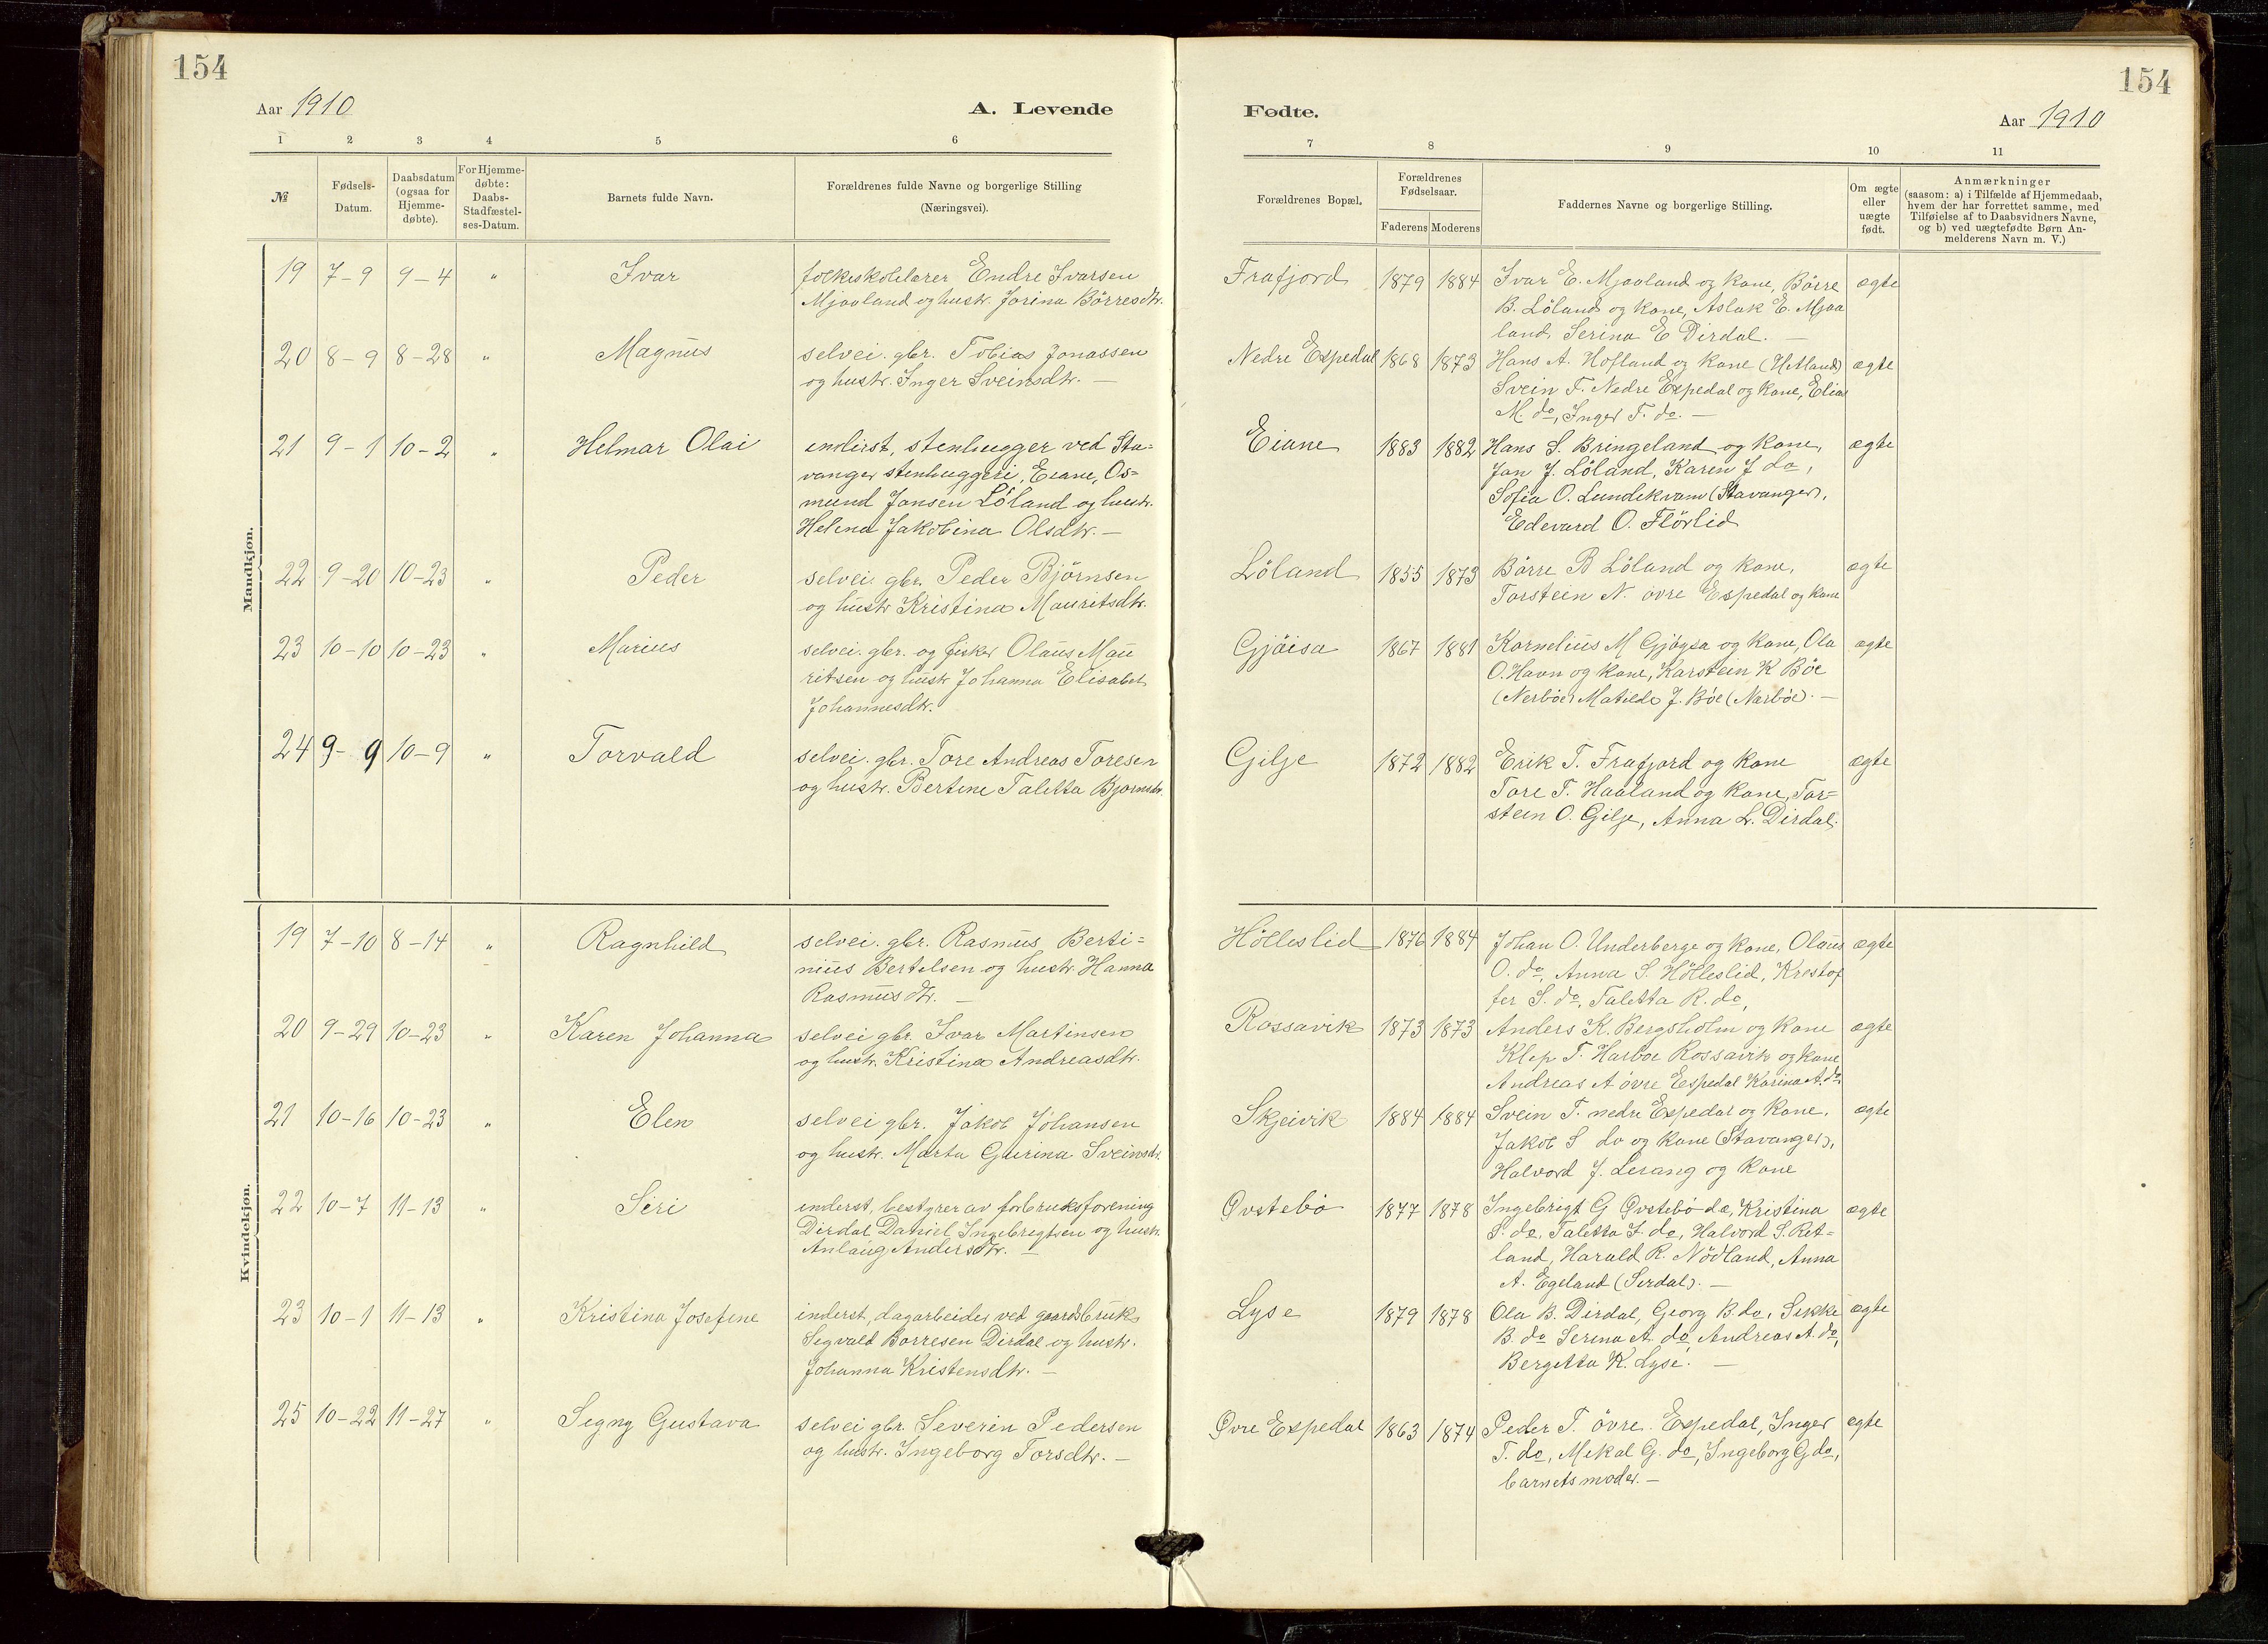 154
154
Aar 1910
A. Levende
Fødte.
Aar 1910
1 2 3 4 5 6
7 8 9 10 11
№
Fødsels-
Datum.
Daabsdatum
(ogsaa for
Hjemme-
døbte).
For Hjemme-
døbte:
Daabs-
Stadfæstel-
ses-Datum.
Barnets fulde Navn.
Forældrenes fulde Navne og borgerlige Stilling
(Næringsvei).
Forældrenes Bopæl.
Forældrenes
Fødselsaar.
Faderens Moderens
Faddernes Navne og borgerlige Stilling.
Om ægte
eller
uægte
født.
Anmærkninger
(saasom: a) i Tilfælde af Hjemmedaab,
hvem der har forrettet samme, med
Tilføielse af to Daabsvidners Navne,
og b) ved uægtefødte Børn An-
melderens Navn m. V.)
Mandkjøn.
19 7-9 9-4 " Ivar
folkeskolelærer Endre Ivarsen
Mjaaland og hustr. Jorina Börresdtr.
Frafjord 1879 1884
Ivar E. Mjaaland og kone, Börre
B. Löland og kone, Aslak E. Mjaa
land, Serina E Dirdal. —
ægte
20 8-9 8-28 " Magnus
selvei. gbr. Tobias Jonassen
og hustr. Inger Sveinsdtr. —
Nedre Espedal 1868 1873
Hans A. Hofland og kone (Hetland)
Svein T. Nedre Espedal og kone, Elias
M. do, Inger T. do. —
ægte
21 9-1 10-2 " Helmar Olai
inderst, stenhugger ved Sta-
vanger stenhuggeri, Eiane, Os-
mund Jansen Löland og hustr.
Helena Jakobina Olsdtr. —
Eiane 1883 1882
Hans S. Bringeland og kone,
Jan J. Löland, Karen J do,
Sofia O. Lundekvam (Stavanger),
Edevard O. Flörlid
ægte
22 9-20 10-23 " Peder
selvei. gbr. Peder Björnsen
og hustr Kristina Mauritsdtr.
Löland 1855 1873
Börre B Löland og kone,
Torstein N. övre Espedal og kone
ægte
23 10-10 10-23 " Marius
selvei. gbr. og fisker Olaus Mau
ritsen og hustr Johanna Elisabet
Johannesdtr.
Gjöisa 1867 1881
Kornelius M Gjöysa og kone, Ola
O. Havn og kone, Karstein K Böe
(Nerböe) Matilde J. Böe (Nærböe). —
ægte
24 9-9 10-9 " Torvald
selvei. gbr. Tore Andreas Toresen
og hustr. Bertine Taletta Bjornsdtr.
Gilje 1872 1882
Erik T. Frafjord og kone
Tore T. Haaland og kone, Tor=
stein O. Gilje, Anna L. Dirdal.
ægte
Kvindekjøn.
19 7-10 8-14 " Ragnhild
selvei. gbr. Rasmus Berti=
nius Bertelsen og hustr. Hanna
Rasmusdtr. —
Hölleslid 1876 1884
Johan O. Underberge og kone, Olaus
O. do, Anna S. Hölleslid, Kristof
fer S. do, Taletta R. do,
ægte
20 9-29 10-23 " Karen Johanna
selvei gbr. Ivar Martinsen
og hustr. Kristina Andreasdtr.
Rossavik 1873 1873
Anders K. Bergsholm og kone
Klep T. Harboe Rossavik og kone
Andreas A övre Espedal Karina A. do
ægte
21 10-16 10-23 " Elen
selvei gbr. Jakob Johansen
og hustr. Marta Gurina Sveinsdr.
Skjeivik 1884 1884
Svein T. nedre Espedal og kone,
Jakob S do og kone (Stavanger),
Halvord J. Lerang og kone
ægte
22 10-7 11-13 " Siri
inderst, bestyrer av forbruksforening
Dirdal Daniel Ingebrigtsen og hustr.
Anlaug Andersdtr. —
Övstebö 1877 1878
Ingebrigt G Övstebö do, Kristina
S. do, Taletta I. do, Halvord S. Ret-
land, Harald R. Nödland, Anna
A. Egeland (Sirdal). —
ægte
23 10-1 11-13 " Kristina Josefine
inderst, dagarbeider ved gaardsbruk
Segvald Borresen Dirdal og hustr.
Johanna Kristensdtr. —
Lyse 1879 1878
Ola B. Dirdal, Georg B. do, Sikke
B. do Serina A. do, Andreas A. do,
Bergetta K. Lyse. —
ægte
25 10-22 11-27 " Segny Gustava
selvei gbr. Severin Pedersen
og hustr. Ingeborg Torsdtr. —
Övre Espedal 1863 1874
Peder T. övre Espedal, Inger
T. do, Mekal G. do, Ingeborg G. do,
barnets moder. —
ægte